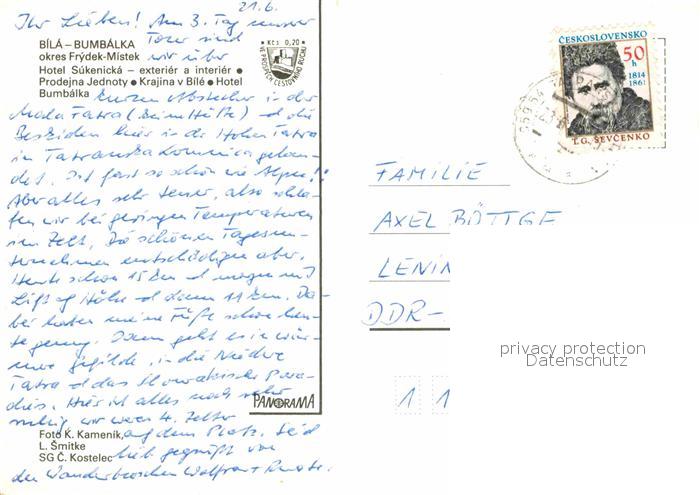 21.6.
Ihr Lieben! Am 3. Tag unserer
Tour sind
wir über
BÍLÁ – BUMBÁLKA
okres Frýdek-Místek
Hotel Súkenická – exteriér a interiér ●
Prodejna Jednoty ● Krajina v Bílé ● Hotel
Bumbálka
● Kčs 0,20 ●
VE PROSPĚCH CESTOVNÍHO RUCHU
kurzen Abstecher in der
Mala Fatra (Steinhütte) d die
Beskiden hier in der Hohen Tatra
in Tatranska Lomnica gelan-
det. Ist fast so schön wie Alpen!
Aber alles sehr teuer, also schla-
fen wir bei geringen Temperaturen
im Zelt. Die schönen Tagesun-
ternehmen entschädigen aber.
Heute schon 15 km d morgen mit
Lift auf Höhe d dann 11 km. Da-
bei haben meine Füße schon heu-
te genug. Dann geht es in wär-
mere Gefilde, in die Niedere
Tatra d das Slowakische Para-
dies. Hier ist alles noch sehr
ruhig, wir waren 4. Zelter
auf dem Platz. Seid
lieb gegrüßt von
den Wanderburschen Wolfram + Renate.
PANORAMA
Foto K. Kameník,
L. Šmitke
SG Č. Kostelec
ČESKOSLOVENSKO
50 h
1814
1861
T.G. ŠEVČENKO
FAMILIE
AXEL BÖTTGE
LENIN
DDR-
1 1
privacy protection
Datenschutz